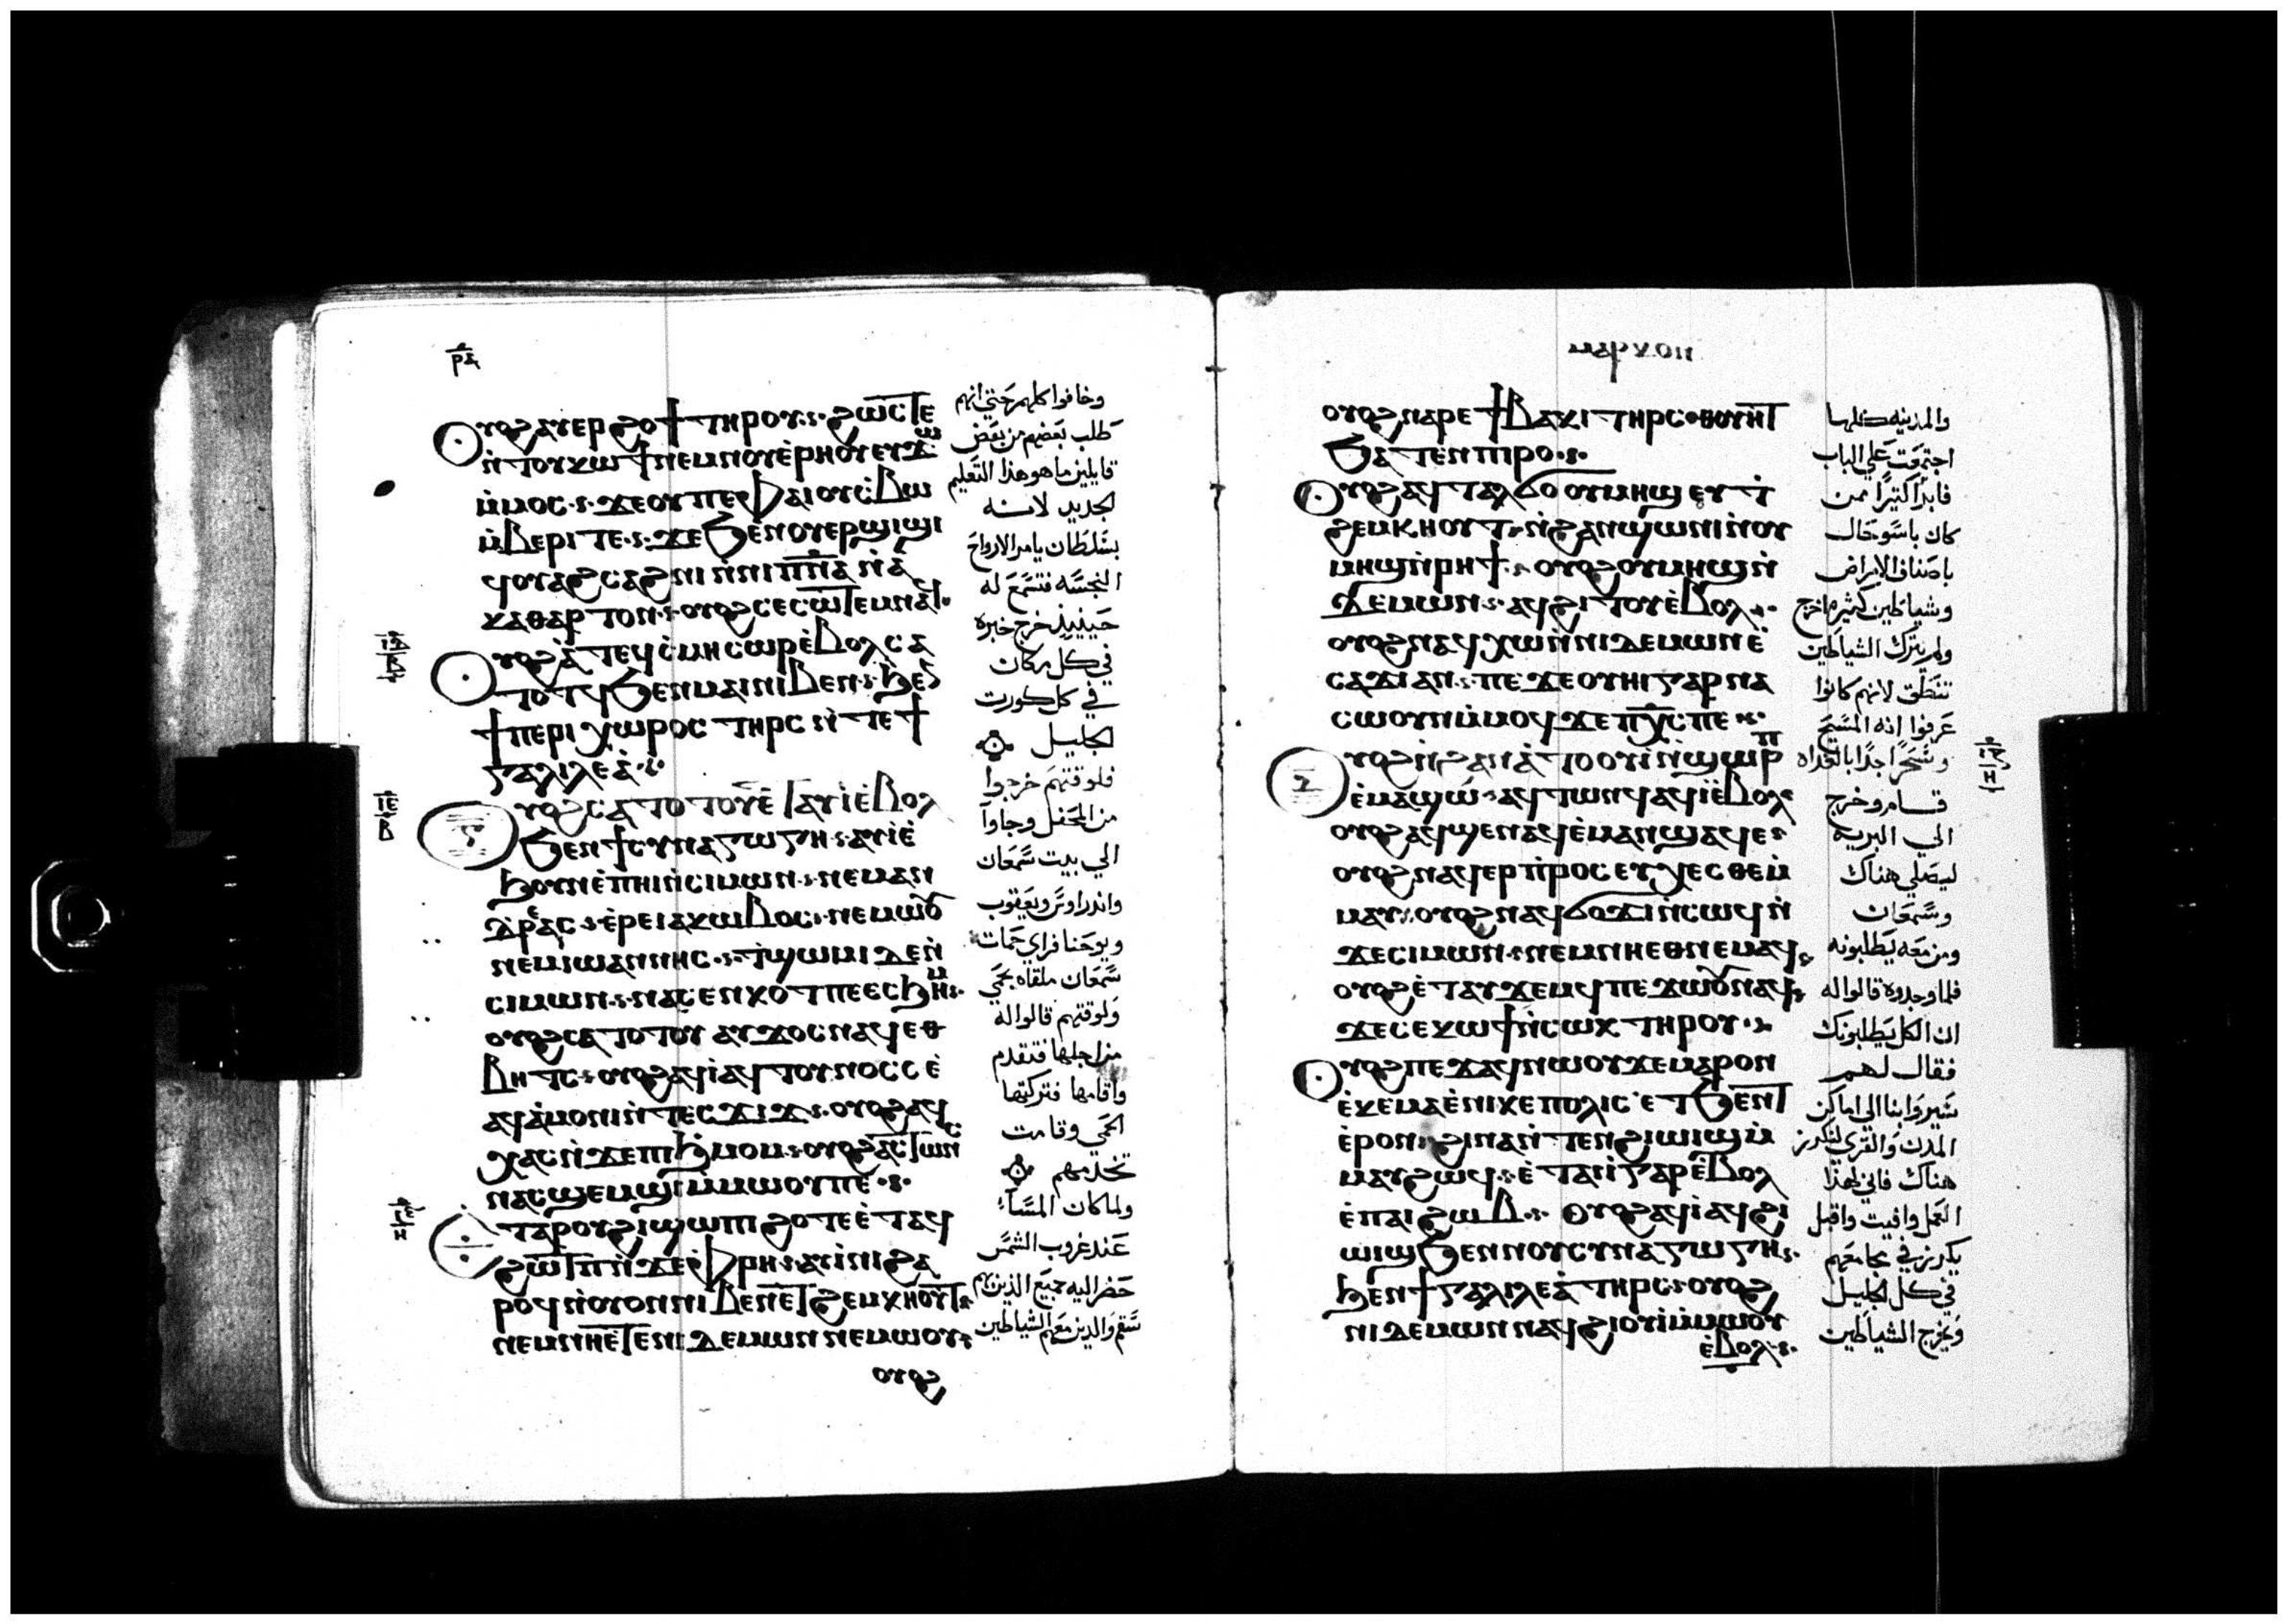 ⲣⲇ
ⲟⲩⲟϩ ⲁⲩⲉⲣϩⲟϯ ⲧⲏⲣⲟⲩ ϩⲱⲥⲧⲉ
ⲛⲧⲟⲩⲕⲱϯ ⲛⲉⲙ ⲛⲟⲩⲉⲣⲏⲟⲩ ⲉⲩϫⲱ
ⲙⲙⲟⲥ ϫⲉ ⲟⲩ ⲡⲉ ⲫⲁⲓ ⲟⲩⲥⲃⲱ
ⲙⲃⲉⲣⲓ ⲧⲉ ϫⲉ ϧⲉⲛ ⲟⲩⲉⲣϣⲓϣⲓ
ϥⲟⲩⲁϩⲥⲁϩⲛⲓ ⲛⲛⲓⲡⲛⲁ ⲛⲁ
ⲕⲁⲑⲁⲣⲧⲟⲛ ⲟⲩⲟϩ ⲥⲉⲥⲱⲧⲉⲙ ⲛⲁϥ
ⲟⲩⲟϩ ⲁ ⲧⲉϥⲥⲙⲏ ⲥⲱⲣ ⲉⲃⲟⲗ ⲥⲁ
ⲧⲟⲧϥ ϧⲉⲛ ⲙⲁⲓ ⲛⲓⲃⲉⲛ ϧⲉⲛ
ϯⲡⲉⲣⲓⲭⲱⲣⲟⲥ ⲧⲏⲣⲥ ⲛⲧⲉ ϯ
ⲅⲁⲗⲓⲗⲉⲁ
ⲟⲩⲟϩ ⲥⲁⲧⲟⲧⲟⲩ ⲉⲧⲁⲩⲓ ⲉⲃⲟⲗ
ϧⲉⲛ ϯⲥⲩⲛⲁⲅⲱⲅⲏ ⲁⲩⲓ ⲉ
ϧⲟⲩⲛ ⲉⲡⲏⲓ ⲛⲥⲓⲙⲱⲛ ⲛⲉⲙ ⲁⲛ
ⲇⲣⲉⲁⲥ ⲉⲣⲉ ⲓⲁⲕⲱⲃⲟⲥ ⲛⲉⲙⲱⲟⲩ
ⲛⲉⲙ ⲓⲱⲁⲛⲛⲏⲥ ⲧϣⲱⲙⲓ ⲇⲉ ⲛ
ⲥⲓⲙⲱⲛ ⲛⲁⲥⲉⲛⲕⲟⲧ ⲡⲉ ⲉⲥϧⲏⲙ
ⲟⲩⲟϩ ⲥⲁⲧⲟⲧⲟⲩ ⲁⲩϫⲟⲥ ⲛⲁϥ ⲉⲑ
ⲃⲏⲧⲥ ⲟⲩⲟϩ ⲁϥⲓ ⲁϥⲧⲟⲩⲛⲟⲥⲥ ⲉ
ⲁϥⲁⲙⲟⲛⲓ ⲛⲧⲉⲥϫⲓϫ ⲟⲩⲟϩ ⲁϥ
ⲭⲁⲥ ⲛϫⲉ ⲡⲓϧⲙⲟⲙ ⲟⲩⲟϩ ⲁⲥⲧⲱⲛⲥ
ⲛⲁⲥϣⲉⲙϣⲓ ⲙⲙⲱⲟⲩ ⲡⲉ
ⲉⲧⲁ ⲣⲟⲩϩⲓ ϣⲱⲡⲓ ϩⲟⲧⲉ ⲉⲧⲁϥ
ϩⲱⲧⲡ ⲛϫⲉ ⲫⲣⲏ ⲁⲩⲓⲛⲓ ϩⲁ
ⲣⲟϥ ⲛⲟⲩⲟⲛ ⲛⲓⲃⲉⲛ ⲉⲧϩⲉⲙⲕⲏⲟⲩⲧ
ⲛⲉⲙ ⲛⲏ ⲉⲧⲉ ⲛⲓⲇⲉⲙⲱⲛ ⲛⲉⲙⲱⲟⲩ
ⲟⲩⲟϩ
وخافوا كلهم حتي انهم
طلب بعضهم من بعض
قايلين ما هو هذا التعليم
الجديد لانه
بسلطان يامر الارواح
النجسه فتسمع له
حينيذ خرج خبره
في كل مكان
في كل كورت
الجليل
فلوقتهم خرجوا
من المحفل وجاوا
الي بيت سمعان
واندراوس ويعقوب
ويوحنا فراي حمات
سمعان ملقاه بحمي
ولوقتهم قالوا له
من اجلها فتقدم
واقامها فتركتها
الحمي وقامت
تخدمهم
ولما كان المساء
عند غروب الشمس
حضر اليه جميع الذين بهم
سقم والذين معهم الشياطين
ⲙⲁⲣⲕⲟⲛ
ⲟⲩⲟϩ ⲛⲁⲣⲉ ϯⲃⲁⲕⲓ ⲧⲏⲣⲥ ⲑⲟⲩⲏⲧ
ϧⲁⲧⲉⲛ ⲡⲓⲣⲟ
ⲟⲩⲟϩ ⲁϥⲧⲁⲗϭⲟ ⲟⲩⲙⲏϣ ⲉⲩⲧ
ϩⲉⲙⲕⲏⲟⲩⲧ ⲛϩⲁⲛϣⲱⲛⲓ ⲛⲟⲩ
ⲙⲏϣ ⲛⲣⲏϯ ⲟⲩⲟϩ ⲟⲩⲙⲏϣ ⲛ
ⲇⲉⲙⲱⲛ ⲁϥϩⲓⲧⲟⲩ ⲉⲃⲟⲗ
ⲟⲩⲟϩ ⲛⲁϥⲭⲱ ⲛⲛⲓⲇⲉⲙⲱⲛ ⲉ
ⲥⲁϫⲓ ⲁⲛ ⲡⲉ ϫⲉ ⲟⲩⲏⲓ ⲅⲁⲣ ⲛⲁ
ⲥⲱⲟⲩⲛ ⲙⲙⲟϥ ϫⲉ ⲡⲭⲥ ⲡⲉ
ⲟⲩⲟϩ ⲛϩⲁⲛⲁⲧⲟⲟⲩⲓ ⲛϣⲱⲣⲡ
ⲉⲙⲁϣⲱ ⲁϥⲧⲱⲛϥ ⲁϥⲓ ⲉⲃⲟⲗ
ⲟⲩⲟϩ ⲁϥϣⲉⲛⲁϥ ⲉⲙⲁⲛϣⲁϥⲉ
ⲟⲩⲟϩ ⲛⲁϥⲉⲣⲡⲣⲟⲥⲉⲩⲭⲉⲥⲑⲉ ⲙ
ⲙⲁⲩ ⲟⲩⲟϩ ⲛⲁϥϭⲟϫⲓ ⲛⲥⲱϥ ⲛ
ϫⲉ ⲥⲓⲙⲱⲛ ⲛⲉⲙ ⲛⲏ ⲉⲑⲛⲉⲙⲁϥ
ⲟⲩⲟϩ ⲉⲧⲁⲩϫⲉⲙϥ ⲡⲉϫⲱⲟⲩ ⲛⲁϥ
ϫⲉ ⲥⲉⲕⲱϯ ⲛⲥⲱⲕ ⲧⲏⲣⲟⲩ
ⲟⲩⲟϩ ⲡⲉϫⲁϥ ⲛⲱⲟⲩ ϫⲉ ⲙⲁⲣⲟⲛ
ⲉⲕⲉⲙⲁ ⲉⲛⲓⲕⲉⲡⲟⲗⲓⲥ ⲉⲧϧⲉⲛⲧ
ⲉⲣⲟⲛ ϩⲓⲛⲁ ⲛⲧⲉⲛϩⲓⲱⲓϣ ⲙ
ⲙⲁⲩ ϩⲱϥ ⲉⲧⲁⲓⲓ ⲅⲁⲣ ⲉⲃⲟⲗ
ⲉⲡⲁⲓϩⲱⲃ ⲟⲩⲟϩ ⲁϥⲓ ⲁϥϩⲓ
ⲱⲓϣ ϧⲉⲛ ⲛⲟⲩⲥⲩⲛⲁⲅⲱⲅⲏ
ϧⲉⲛ ϯⲅⲁⲗⲓⲗⲉⲁ ⲧⲏⲣⲥ ⲟⲩⲟϩ
ⲛⲓⲇⲉⲙⲱⲛ ⲛⲁϥϩⲓⲟⲩⲓ ⲙⲙⲱⲟⲩ
ⲉⲃⲟⲗ
والمدينه كلها
اجتمعت علي الباب
فابرا كثيرا ممن
كان باسو حال
باصناف الامراض
وشياطين كثيره اخرج
ولم يترك الشياطين
تنطق لانهم كانوا
عرفوا انه المسيح
وسحرا جدا بالغداه
قام وخرج
الي البريه
ليصلي هناك
وسمعان
ومن معه يطلبونه
فلما وجدوه قالوا له
ان الكل يطلبونك
فقال لهم
سيروا بنا الي اماكن
المدن والقري لنكرز
هناك فاني لهذا
العمل وافيت واقبل
يكرز في مجامعهم
في كل الجليل
ويخرج الشياطين